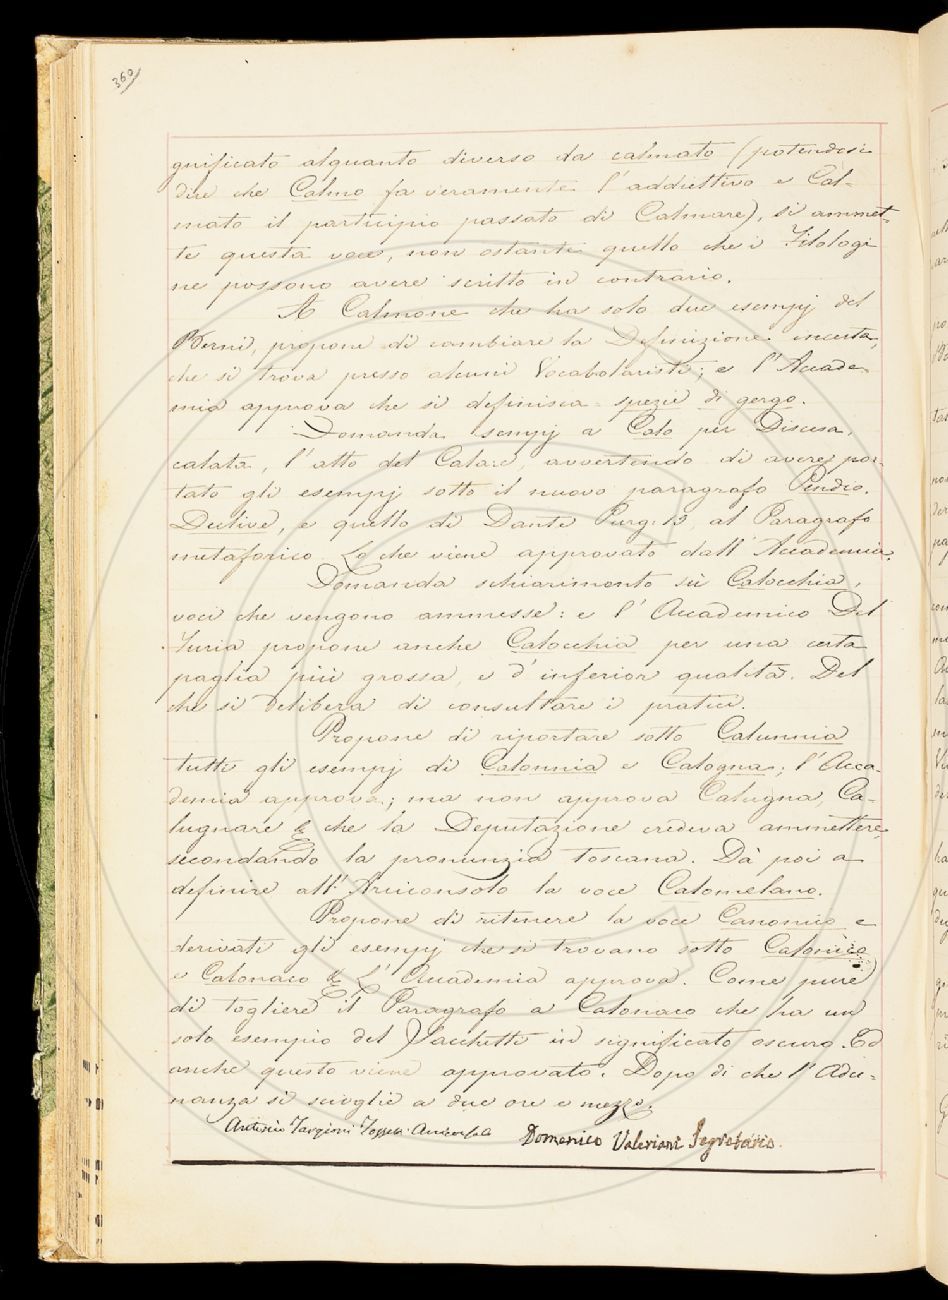 360
gnificato alquanto diverso da calmato (potendosi
dire che Calmo fa veramente l'addiettivo e Cal-
mato il participio passato di Calmare), si ammet-
te questa voce, non ostante quello che i Filologi
ne possono avere scritto in contrario.
A Calmone che ha solo due esempj del
Berni, propone di cambiare la Definizione incerta,
che si trova presso alcuni Vocabolaristi; e l'Accade-
mia approva che si definisca spezie di gergo.
Domanda esempj a Calo per Discesa,
calata, l'atto del Calare, avvertendo di avere por-
tato gli esempj sotto il nuovo paragrafo Pendio,
Declive, e quello di Dante Purg: 12, al Paragrafo
metaforico. Lo che viene approvato dall'Accademia.
Domanda schiarimento sù Calocchia,
voci che vengono ammesse: e l'Accademico Del
Furia propone anche Calocchia per una certa
paglia più grossa, e d'inferior qualità. Del
che si delibera di consultare i pratici.
Propone di riportare sotto Calunnia
tutti gli esempj di Calonnia e Calogna; l'Acca-
demia approva; ma non approva Calugna, Ca-
lugnare & che la Deputazione credeva ammettere,
secondando la pronunzia toscana. Dà poi a
definire all'Arciconsolo la voce Calomelano.
Propone di ritenere la voce Canonico e
derivati gli esempj che si trovano sotto Calonico
e Calonaco & L'Accademia approva. Come pure
di togliere il Paragrafo a Calonaco che ha un
solo esempio del Sacchetti in significato oscuro. Ed
anche questo viene approvato. Dopo di che l'Adu-
nanza si scioglie a due ore e mezzo.
Targioni Tozzetti Domenico Valeriani Segretario.